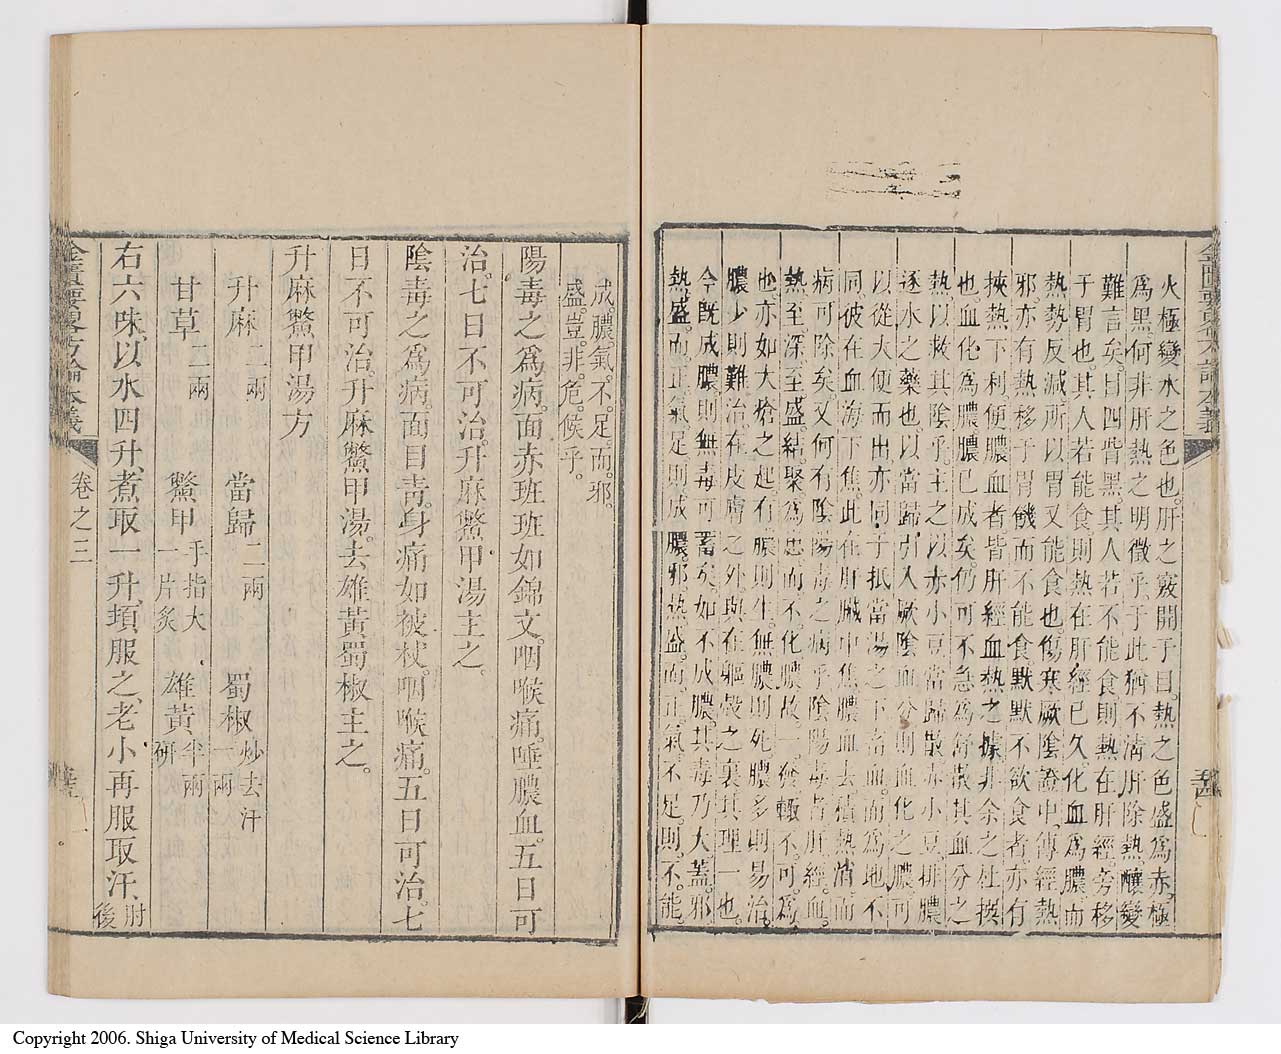 火極變水之色也。肝之竅開于目。熱之色盛爲赤。極
爲黑。何非肝熱之明徵乎。于此猶不清肝除熱。釀變
難言矣。目四眥黑。其人若不能食。則熱在肝經。旁移
于胃也。其人若能食。則熱在肝經已久。化血爲膿。而
邪亦有熱移于胃。饑而不能食。默默不欲食者。亦有
熱勢反減。所以胃又能食也。傷寒厥陰證中。傳經熱
挾熱下利。便膿血者。皆肝經血熱之據。非余之杜撰
也。血化爲膿。膿已成矣。仍可不急爲舒散其血分之
熱。以救其陰乎。主之以赤小豆當歸散。赤小豆。排膿
逐水之藥也。以當歸引入厥陰血分。則血化之膿。可
以從大便而出。亦同于抵當湯之下瘀血。而爲地不
同。彼在血海下焦。此在肝臟中焦。膿血去。積熱消。而
病可除矣。又何有陰陽毒之病乎。陰陽毒者。肝經血
熱至深至盛。結聚爲患。而不化膿。故一發輒不可爲
也。亦如大瘡之起。有膿則生。無膿則死。膿多則易治。
膿少則難治。在皮膚之外。與在軀殼之裏。其理一也。
今既成膿。則無毒可蓄矣。如不成膿。其毒乃大。蓋邪
熱盛。而正氣足。則成膿。邪熱盛。而正氣不足。則不能
金匱要略方論本義
成膿。氣不足。而邪
盛。豈非危候乎。
陽毒之爲病。面赤班班如錦文。咽喉痛。唾膿血。五日可
治。七日不可治。升麻鱉甲湯主之。
陰毒之爲病。面目青。身痛如被杖。咽喉痛。五日可治。七
日不可治。升麻鱉甲湯。去雄黃蜀椒主之。
升麻鱉甲湯方
升麻二兩 當歸一兩 蜀椒炒去汗一兩
甘草二兩 鱉甲手指大一片炙 雄黃半兩研
右六味。以水四升。煮取一升。頓服之。老小再服取汗。肘後
金匱要略方論本義 卷之三
Copyright 2006. Shiga University of Medical Science Library